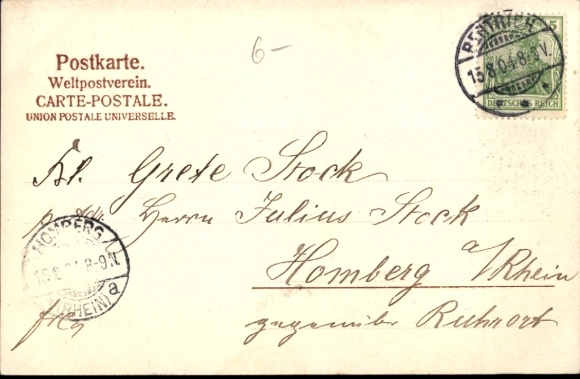 6-
Postkarte.
Weltpostverein.
CARTE-POSTALE.
UNION POSTALE UNIVERSELLE.
BERTRICH
15.8.04.8-9V.
5
DEUTSCHES REICH
Frl. Grete Stock
p. Adr. Herrn Julius Stock
Homberg a/Rhein
gegenüber Ruhrort
HOMBERG
15.8.04.8-9N.
(RHEIN) a